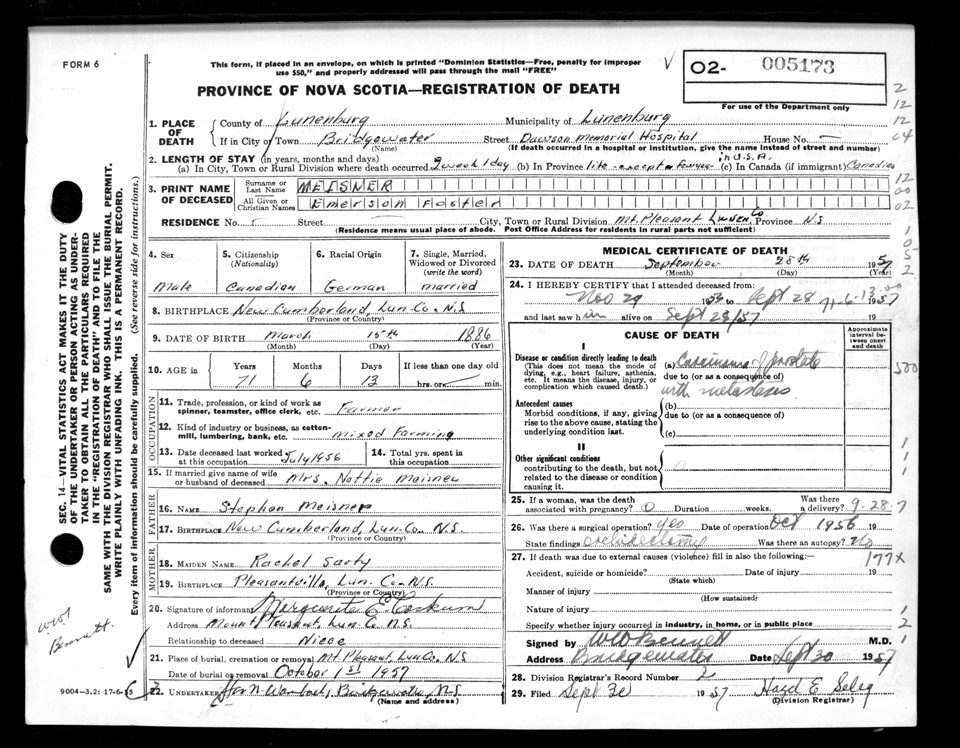 FORM 6
This form, if placed in an envelope, on which is printed "Dominion Statistics—Free, penalty for improper
use $50," and properly addressed will pass through the mail "FREE"
02- 005173
PROVINCE OF NOVA SCOTIA—REGISTRATION OF DEATH
For use of the Department only
SEC. 14—VITAL STATISTICS ACT MAKES IT THE DUTY
OF THE UNDERTAKER OR PERSON ACTING AS UNDER-
TAKER TO OBTAIN ALL THE PARTICULARS REQUIRED
IN THE "REGISTRATION OF DEATH" AND TO FILE THE
SAME WITH THE DIVISION REGISTRAR WHO SHALL ISSUE THE BURIAL PERMIT.
WRITE PLAINLY WITH UNFADING INK. THIS IS A PERMANENT RECORD.
Every item of information should be carefully supplied. (See reverse side for instructions.)
1. PLACE OF DEATH
County of Lunenburg Municipality of Lunenburg
If in City or Town Bridgewater Street Dawson Memorial Hospital House No. —
(Name) (If death occurred in a hospital or institution, give the name instead of street and number)
2. LENGTH OF STAY (in years, months and days)
in U.S.A.
(a) In City, Town or Rural Division where death occurred week 1 day (b) In Province life except a (c) In Canada (if immigrant) Canadian
3. PRINT NAME OF DECEASED
Surname or Last Name MEISNER
All Given or Christian Names Emerson Foster
RESIDENCE No. Street City, Town or Rural Division Mt. Pleasant Lunen. Co. Province N.S
(Residence means usual place of abode. Post Office Address for residents in rural parts not sufficient)
4. Sex
Male
5. Citizenship (Nationality)
Canadian
6. Racial Origin
German
7. Single, Married, Widowed or Divorced (write the word)
married
8. BIRTHPLACE New Cumberland, Lun-Co. N.S.
(Province or Country)
9. DATE OF BIRTH March 15th 1886
(Month) (Day) (Year)
10. AGE in Years Months Days If less than one day old
71 6 13 hrs. or min.
OCCUPATION
11. Trade, profession, or kind of work as
spinner, teamster, office clerk, etc. Farmer
12. Kind of industry or business, as cotton-
mill, lumbering, bank, etc. mixed Farming
13. Date deceased last worked at this occupation July 1956
14. Total yrs. spent in this occupation
15. If married give name of wife
or husband of deceased Mrs. Nettie Meisner
FATHER
16. NAME Stephen Meisner
17. BIRTHPLACE New Cumberland, Lun. Co. N.S.
(Province or Country)
MOTHER
18. MAIDEN NAME Rachel Sarty
19. BIRTHPLACE Pleasantville, Lun. Co. N.S.
(Province or Country)
20. Signature of informant Marguerite E.
Address Mount Pleasant, Lun. Co N.S.
Relationship to deceased Niece
21. Place of burial, cremation or removal Mt Pleasant, Lun Co. N.S
Date of burial or removal October 1st 1957
22. Undertaker Bridgewater, N.S
(Name and address)
9004-3.2: 17-6-55
WW
Bennett.
MEDICAL CERTIFICATE OF DEATH
23. DATE OF DEATH September 28th 1957
(Month) (Day) (Year)
24. I HEREBY CERTIFY that I attended deceased from:
Nov 29 1953 to Sept 28 1957
and last saw him alive on Sept 28/57 19
CAUSE OF DEATH
Approximate interval between onset and death
I
Disease or condition directly leading to death
(This does not mean the mode of dying, e.g., heart failure, asthenia, etc. It means the disease, injury, or complication which caused death.)
(a) Carcinoma of prostate
due to (or as a consequence of)
with metastasis
Antecedent causes
Morbid conditions, if any, giving rise to the above cause, stating the underlying condition last.
(b)
due to (or as a consequence of)
(c)
II
Other significant conditions
contributing to the death, but not related to the disease or condition causing it.
25. If a woman, was the death associated with pregnancy? 0 Duration weeks. Was there a delivery? 9-28-7
26. Was there a surgical operation? yes Date of operation Oct 1956 19
State findings orchidectomy Was there an autopsy? No
27. If death was due to external causes (violence) fill in also the following:
177X
Accident, suicide or homicide? Date of injury 19
(State which)
Manner of injury
(How sustained)
Nature of injury
Specify whether injury occurred in industry, in home, or in public place
Signed by WW Bennett M.D.
Address Bridgewater Date Sept 30 1957
28. Division Registrar's Record Number 2
29. Filed Sept 30 1957
(Division Registrar)